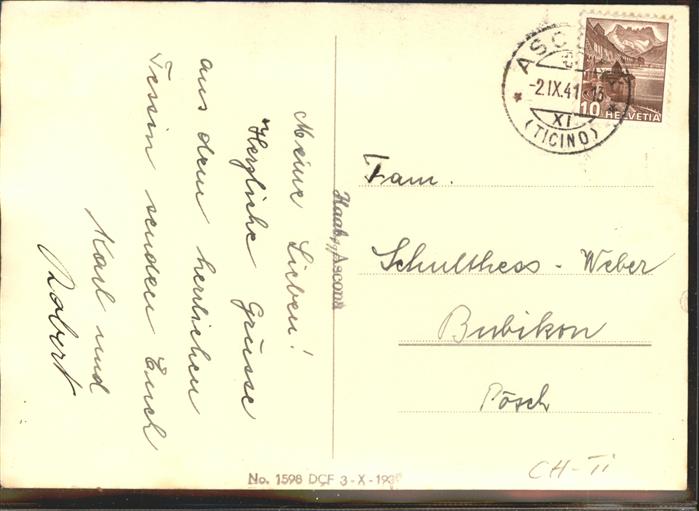 Meine Lieben!
Herzliche Grüsse
aus dem herrlichen
Tessin senden Euch
Karl und
Robert
ASCONA
-2.IX.41.-13
XI
(TICINO)
10 HELVETIA
Fam.
Schulthess - Weber
Bubikon
Pösch
Ascona
No. 1598 DÇF 3-X-193
CH-TI